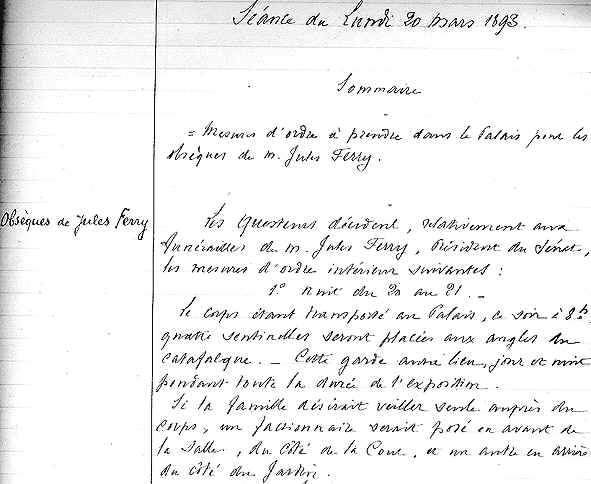 Séance du Lundi 20 mars 1893.
Sommaire
= Mesures d'ordre à prendre dans le Palais pour les
obsèques de M. Jules Ferry.
Obsèques de Jules Ferry
Les Questeurs décident, relativement aux
funérailles de M. Jules Ferry, Président du Sénat,
les mesures d'ordre intérieur suivantes :
1º nuit du 20 au 21. _
Le corps étant transporté au Palais, ce soir à 8 hs,
quatre sentinelles seront placées aux angles du
catafalque. _ Cette garde aura lieu, jour et nuit
pendant toute la durée de l'exposition.
Si la famille désirait veiller seule auprès du
corps, un factionnaire serait posé en avant de
la Salle, du côté de la Cour, et un autre en arrière
du côté du Jardin.